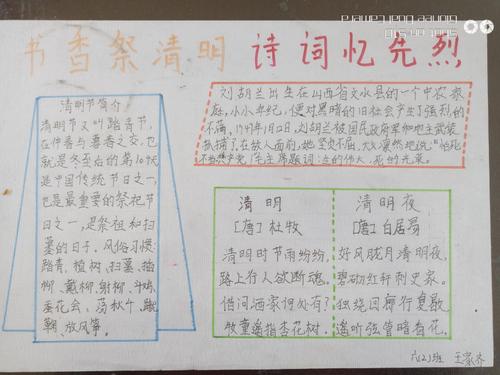 书香祭清明 诗词忆先烈
清明节简介
清明节又叫踏青节,
在仲春与暮春之交,也
就是冬至后的第10天
是中国传统节日之一,
也是最重要的祭祀节
日之一,是祭祖和扫
墓的日子。风俗习惯:
踏青、植树、扫墓、插
柳、戴柳、射柳、斗鸡、
蚕花会、荡秋千、蹴
鞠、放风筝。
刘胡兰出生在山西省文水县的一个中农家
庭,小小年纪,便对黑暗的旧社会产生了强烈的
不满,1947年1月12日,刘胡兰被国民政府军和地主武装
抓捕了在敌人面前,她坚贞不屈,大义凛然地说:"怕死
不当共产党"毛主席题词:生的伟大,死的光荣。
清明
[唐]杜牧
清明时节雨纷纷,
路上行人欲断魂。
借问酒家何处有?
牧童遥指杏花村。
清明夜
[唐]白居易
好风胧月清明夜,
碧砌红轩刺史家。
独绕回廊行复歇
遥听弦管暗看花。
六(2)班 王家齐